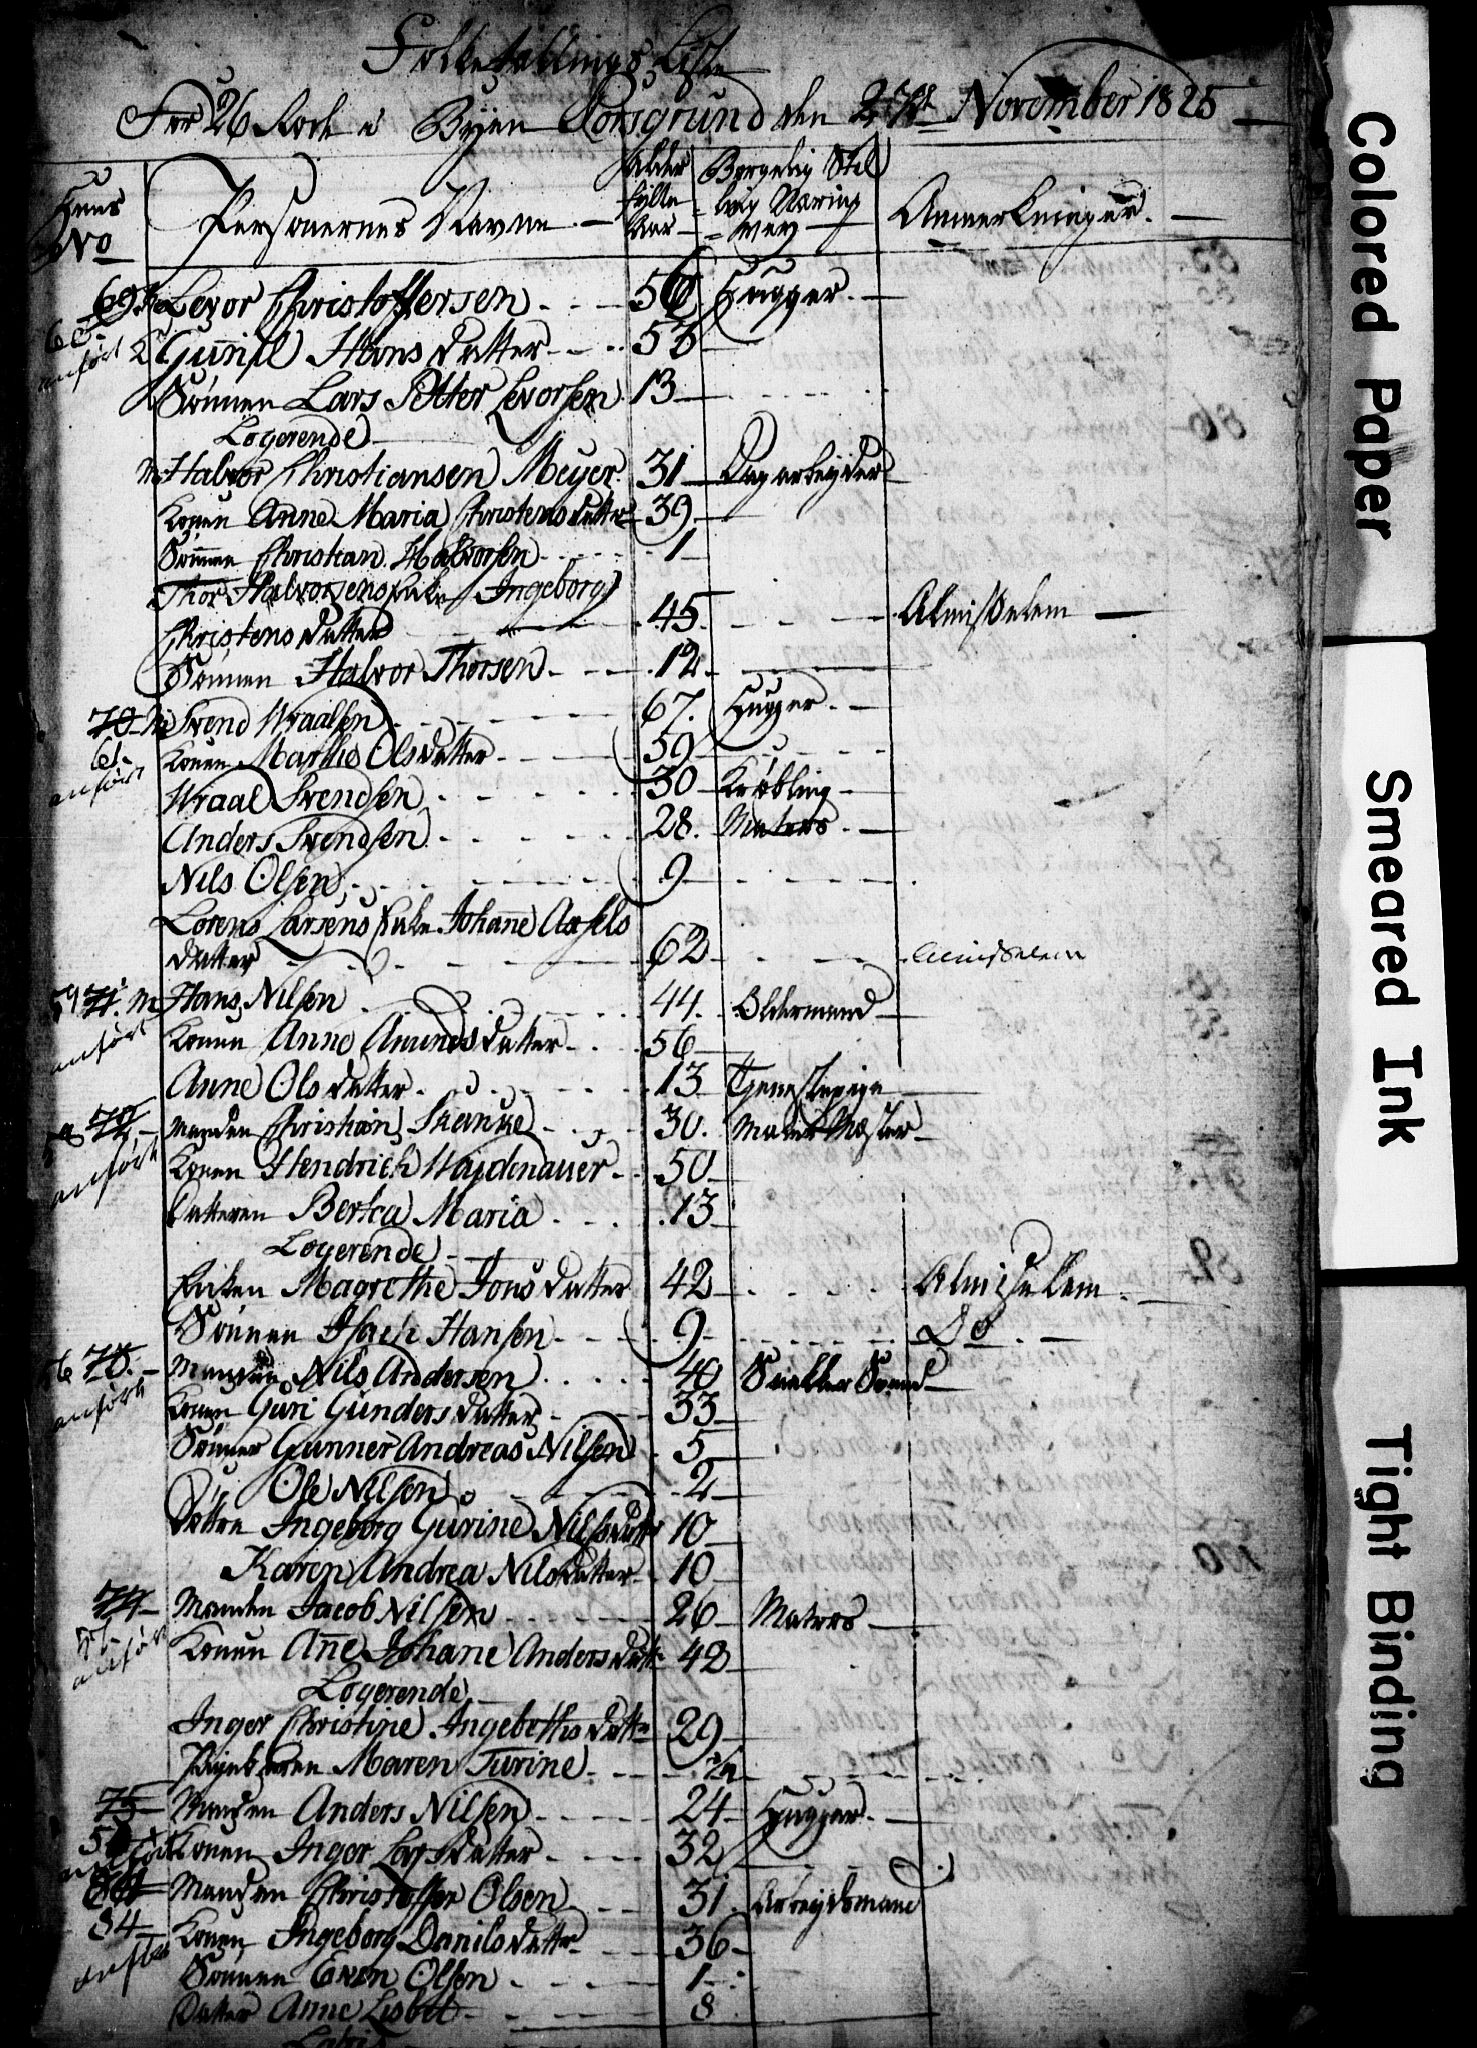 Folketællings Liste
For 26 Rode i Byen Porsgrund den 27de November 1825
Huus No Personernes Navne Alder fylte Aar Borgerlig Stilling Næring wey Anmerkninger
69 Levor Christoffersen 56 Hugger
60 anført Gunnil Hans datter 53
Sønnen Lars Petter Levorsen 13
Logerende
M Halvor Christiansen Meyer 31 Dagarbeyder
Konen Anne Maria Christens datter 39
Sønnen Christian Halvorsen 1
Thor Halvorsens Enke Ingeborg
Christens datter 45 Almisselem
Sønnen Halvor Thorsen 12
70 M Svend Wraalsen 67 Hugger
61 anført Konen Marthe Ols datter 59
Wraal Svendsen 30 Krøbling
Anders Svendsen 28 Matros
Nils Olsen 9
Lorens Larsens Enke Johanne Axels
datter 62 Almisselem
59 71 M Hans Nilsen 44 Oldermand
anført Konen Anne Amunds datter 56
Anne Ols datter 13 Tjenestepige
72 Manden Christian Skanke 30 Maler Mester
anført Konen Hendrich Wajdenauer 50
Datteren Bertea Maria 13
Logerende
Enken Magrethe Jons datter 42 Almisselem
Sønnen Isach Hansen 9 Do
73 Manden Nils Andersen 40 Snekker Svend
anført Konen Guri Gunders datter 33
Sønner Gunner Andreas Nilsen 5
Ole Nilsen 2
Døttre Ingeborg Gurine Nilsdatter 10
Karen Andrea Nilsdatter 10
74 Manden Jacob Nilsen 26 Matros
anført Konen Anne Johane Anders datt 42
Logerende
Inger Christine Ingebreths datter 29
Pigebarn Maren Turine
75 Manden Anders Nilsen 24 Hugger
anført Konen Inger Lars datter 32
Manden Christoffer Olsen 31 Arbeydsmand
84 Konen Ingeborg Danils datter 36
anført Sønnen Even Olsen 1
Datter Anne Lisbet 8
Colored Paper
Smeared Ink
Tight Binding